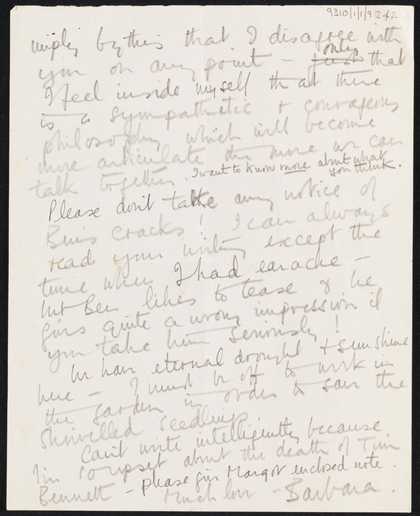 9210/1/1/9242
imply by this that I disagree with
you on any point - just only that
I feel inside myself that all there
is a sympathetic & courageous
philosophy which will become
more articulate the more we can
talk together. I want to know more about what
you think.
Please don't take any notice of
Ben's cracks! I can always
read your writing except the
time when I had earache -
but Ben likes to tease & he
gives quite a wrong impression if
you take him seriously!
We have eternal drought & sunshine
here - I must be off to work in
the garden in order to save the
shrivelled seedlings.
Can't write intelligently because
I'm so upset about the death of Tim
Bennett - please give Margot enclosed note.
Much love - Barbara.